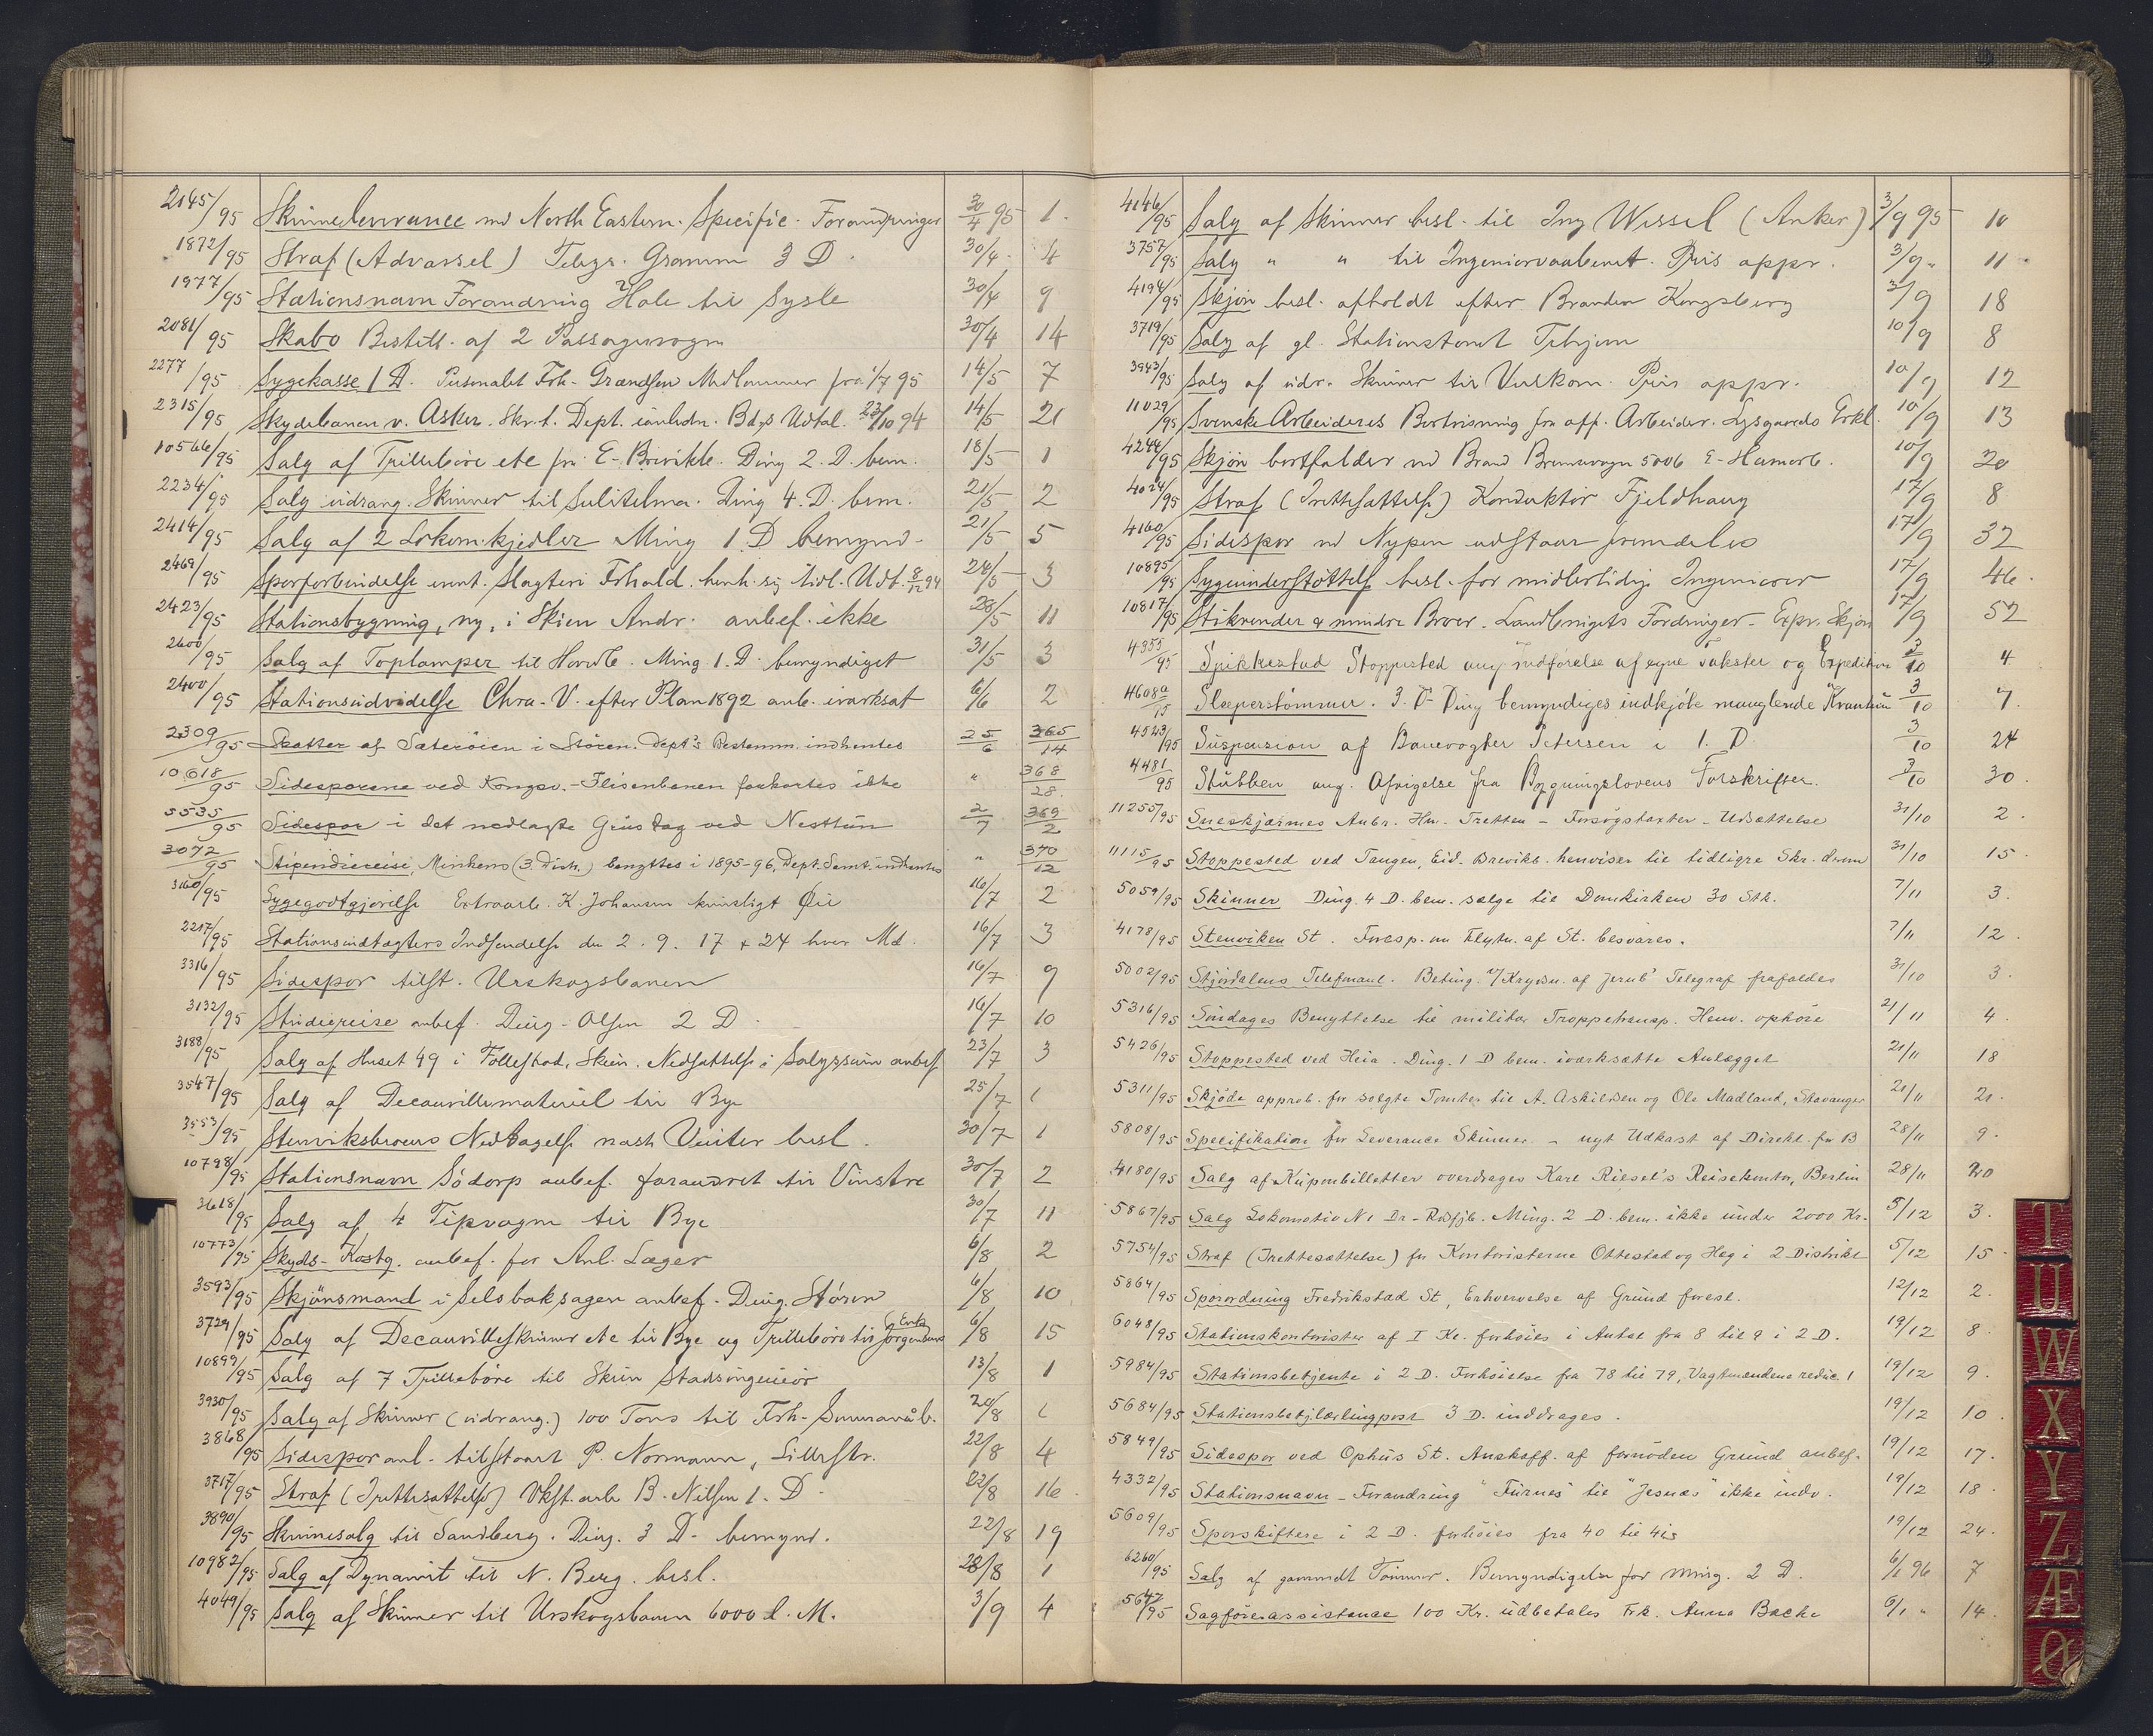 2145/95 Skinneleverance med North Eastern. Specific. Forandringer 30/4 95 1.
1872/95 Straf (Advarsel) Telegr. Gramm 3 D. 30/4. 4
1977/95 Stationsnavn Forandring Hole til Sysle 30/4 9
2081/95 Skabo Bestill. af 2 Passagervogn 30/4 14
2277/95 Sygekasse 1 D. Personalet Frh-Grændsen Medlemmer fra 1/7 95 14/5 7
2315/95 Skydebanen v. Asker. Skr. t. Dept. Bd.s Udtal. 23/10 94 14/5 21
10566/95 Salg af Trillebøre etc fra E-Brevikb. Ding 2. D. bem. 18/5 1
2234/95 Salg udrang. Skinner til Sulitelma. Ding 4. D. bem. 21/5 2
2414/95 Salg af 2 Lokom.kjedler Ming 1 D bemynd. 21/5 5
2469/95 Sporforbindelse Slagteri Frhald. henh. sig tidl. Udt. 8/12 94 24/5 3
2423/95 Stationsbygning, ny, i Skien Andr. anbef. ikke 28/5 11
2600/95 Salg af Toplamper til Hovedb. Ming 1. D. bemyndiget 31/5 3
2400/95 Stationsudvidelse Chra. V. efter Plan 1892 anb. iværksat 6/6 2
2309/95 Skatter af Sæterøien i Støren. Dept's Bestemm. indhentes 25/6 365/14
10618/95 Sidesporene ved Kongsv.-Flisenbanen forkortes ikke " 368/28.
5535/95 Sidespor i det nedlagte Grustag ved Nesttun 2/7 369/2
3072/95 Stipendiereise, Minkens (3. Distr.) benyttes i 1895-96, Dept. Samt. indhentes " 370/12
3160/95 Sygegodtgjørelse Extraarb. K. Johansen kunstigt Øie 16/7 2
2217/95 Stationsindtægters Indsendelse den 2. 9. 17 & 24 hver Md. 16/7 3
3316/95 Sidespor tilst. Urskogsbanen 16/7 9
3132/95 Studiereise anbef. Ding-Olsen 2 D. 16/7 10
3188/95 Salg af Huset 49 i Follestad, Skien. Nedsættelse i Salgssum anbef 23/7 3
3547/95 Salg af Decauvillemateriel til Bye 25/7 1
3553/95 Stenviksbroens Nedtagelse næste Vinter besl. 30/7 1
10798/95 Stationsnavn Södorp anbef. forandret til Vinstre 30/7 2
3618/95 Salg af 4 Tipvogne til Bye 30/7 11
10773/95 Skyds-Kostg. anbef. for Anl. Læger 6/8 2
3593/95 Skjönsmand i Selsbaksagen anbef. Ding. Støren 6/8 10
3729/95 Salg af Decauvilleskinner etc til Bye og Trillebøre til Jørgensens Enke 6/8 15
10899/95 Salg af 7 Trillebøre til Skien Stadsingeniør 13/8 1
3930/95 Salg af Skinner (udrang.) 100 Tons til Frh-Sunnanåb. 20/8 1
3868/95 Sidesporanl. tilstaaet P. Normann, Lillestr. 22/8 4
3717/95 Straf (Irettesættelse) Vkst. arb B. Nilsen 1. D. 22/8 16
3890/95 Skinnesalg til Sandberg. Ding. 3 D. bemynd. 22/8 19
10982/95 Salg af Dynamit til N. Berg. besl. 28/8 1
4049/95 Salg af Skinner til Urskogsbanen 6000 l. M. 3/9 4
4146/95 Salg af Skinner besl. til Ing Wessel (Anker) 3/9 95 10
3757/95 Salg " " til Ingeniørvaabenet. Pris appr. 3/9 " 11
4194/95 Skjøn besl. afholdt efter Branden Kongsberg 3/9 18
3719/95 Salg af gl. Stationstomt 10/9 8
3943/95 Salg af udr. Skinner til Vulkan. Pris appr. 10/9 12
11029/95 Svenske Arbeideres Bortvisning fra off. Arbeider. Lysgaards Erkl. 10/9 13
4244/95 Skjøn bortfalder ved Brand Bremsevogn 5006 E-Hamarb. 10/9 20
4024/95 Straf (Irettesættelse) Konduktør Fjeldhaug 17/9 8
4160/95 Sidespor ved Nypen udstaar fremdeles 17/9 32
10895/95 Sygeunderstøttelse besl. for midlertidige Ingeniører 17/9 46.
10817/95 Stikrender & mindre Broer. Landbrugets Fordringer. Expr. Skjøn 17/9 52
4355/95 Spikkestad Stoppested ang. Indførelse af egne Takster og Expedition 3/10 4
4608a/95 Sleeperstømmer. 3. D. Ding bemyndiges indkjøbe manglende Kvantum 3/10 7.
4523/95 Suspension af Banevogter Petersen i 1. D. 3/10 24
4481/95 Stubben ang. Afvigelse fra Bygningslovens Forskrifter. 3/10 30.
11255/95 Sneskjærmes Anbr. Hm. Tretten - Forsøgstaxter - Udsættelse 31/10 2.
11115/95 Stoppested ved Tangen, Eid. Brevikb. henviser til tidligre Skr. derom 31/10 15.
5059/95 Skinner Ding. 4 D. bem. sælge til Domkirken 30 Stk. 7/11 3.
4178/95 Stenviken St. Foresp. om Flytn. af St. besvares. 7/11 12.
5002/95 Stjørdalens Telefonanl. Beting. v/Krydsn. af Jernb' Telegraf frafaldes 31/10 3.
5316/95 Søndages Benyttelse til militær Troppetransp. Henv. ophøre 21/11 4.
5426/95 Stoppested ved Heia. Ding. 1 D bem. iværksætte Anlægget 21/11 18
5311/95 Skjøde approb. for solgte Tomter til A. Askildsen og Ole Madland, Stavanger 21/11 21.
5808/95 Specifikation for Leverance Skinner - nyt Udkast af Direkt. for B 28/11 9.
4180/95 Salg af Kuponbilletter overdrages Karl Riesel's Reisekontor, Berlin 28/11 20
5867/95 Salg Lokomotiv No 1 Dr-Rdsfjb. Ming. 2 D. bem. ikke under 2000 Kr. 5/12 3.
5754/95 Straf (Irettesættelse) for Kontoristerne Ottestad og Heg i 2 Distrikt 5/12 15.
5864/95 Sporordning Fredrikstad St, Erhvervelse af Grund foresl. 12/12 2.
6048/95 Stationskontorister af I Kl. forhøies i Antal fra 8 til 9 i 2 D. 19/12 8.
5984/95 Stationsbetjente i 2 D. Forhøielse fra 78 til 79, Vagtmændene reduc. 1 19/12 9.
5684/95 Stationsbetj.lærlingpost 3 D. inddrages. 19/12 10.
5849/95 Sidespor ved Ophus St. Anskaff. af fornøden Grund anbef. 19/12 17.
4332/95 Stationsnavn - Forandring "Furnes" til "Jesnæs" ikke indv. 19/12 18.
5609/95 Sporskiftere i 2 D. forhøies fra 40 til 41 19/12 24.
6260/95 Salg af gammelt Tømmer. Bemyndigelse for Ming. 2 D. 6/1 96 7
5647/95 Sagførerassistance 100 Kr. udbetales Frk. Anna Backe 6/1 " 14.
T
U
W
X
Y
Z
Æ
Ø